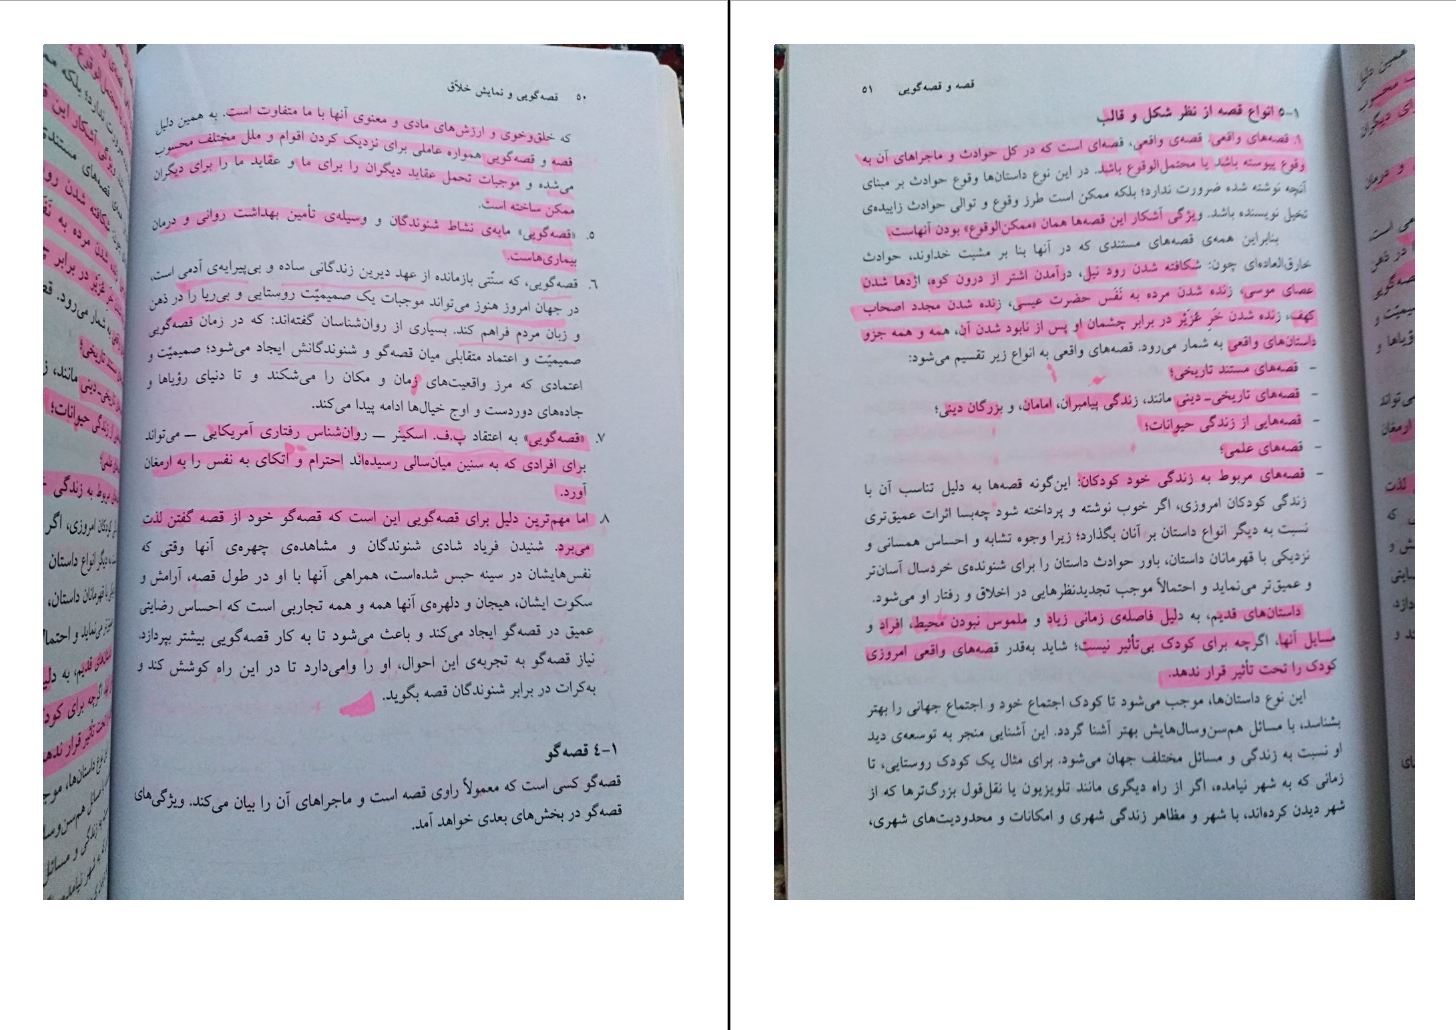 ۵۰ قصه‌گویی و نمایش خلاّق
که خلق‌وخوی و ارزش‌های مادی و معنوی آنها با ما متفاوت است. به همین دلیل
قصه و قصه‌گویی همواره عاملی برای نزدیک کردن اقوام و ملل مختلف محسوب
می‌شده و موجبات تحمل عقاید دیگران را برای ما و عقاید ما را برای دیگران
ممکن ساخته است.
۵. «قصه‌گویی» مایه‌ی نشاط شنوندگان و وسیله‌ی تأمین بهداشت روانی و درمان
بیماری‌هاست.
۶. قصه‌گویی، که سنّتی بازمانده از عهد دیرین زندگانی ساده و بی‌پیرایه‌ی آدمی است،
در جهان امروز هنوز می‌تواند موجبات یک صمیمیّت روستایی و بی‌ریا را در ذهن
و زبان مردم فراهم کند. بسیاری از روان‌شناسان گفته‌اند: که در زمان قصه‌گویی
صمیمیّت و اعتماد متقابلی میان قصه‌گو و شنوندگانش ایجاد می‌شود؛ صمیمیّت و
اعتمادی که مرز واقعیت‌های زمان و مکان را می‌شکند و تا دنیای رؤیاها و
جاده‌های دوردست و اوج خیال‌ها ادامه پیدا می‌کند.
۷. «قصه‌گویی» به اعتقاد پ.ف. اسکینر ــ روان‌شناس رفتاری آمریکایی ــ می‌تواند
برای افرادی که به سنین میان‌سالی رسیده‌اند احترام و اتکای به نفس را به ارمغان
آورد.
۸. اما مهم‌ترین دلیل برای قصه‌گویی این است که قصه‌گو خود از قصه گفتن لذت
می‌برد. شنیدن فریاد شادی شنوندگان و مشاهده‌ی چهره‌ی آنها وقتی که
نفس‌هایشان در سینه حبس شده‌است، همراهی آنها با او در طول قصه، آرامش و
سکوت ایشان، هیجان و دلهره‌ی آنها همه و همه تجاربی است که احساس رضایتی
عمیق در قصه‌گو ایجاد می‌کند و باعث می‌شود تا به کار قصه‌گویی بیشتر بپردازد.
نیاز قصه‌گو به تجربه‌ی این احوال، او را وامی‌دارد تا در این راه کوشش کند و
به‌کرات در برابر شنوندگان قصه بگوید.
۱-۴ قصه‌گو
قصه‌گو کسی است که معمولاً راوی قصه است و ماجراهای آن را بیان می‌کند. ویژگی‌های
قصه‌گو در بخش‌های بعدی خواهد آمد.
قصه و قصه‌گویی ۵۱
۱-۵ انواع قصه از نظر شکل و قالب
۱. قصه‌های واقعی. قصه‌ی واقعی، قصه‌ای است که در کل حوادث و ماجراهای آن به
وقوع پیوسته باشد یا محتمل‌الوقوع باشد. در این نوع داستان‌ها وقوع حوادث بر مبنای
آنچه نوشته شده ضرورت ندارد؛ بلکه ممکن است طرز وقوع و توالی حوادث زاییده‌ی
تخیل نویسنده باشد. ویژگی آشکار این قصه‌ها همان «ممکن‌الوقوع» بودن آنهاست.
بنابراین همه‌ی قصه‌های مستندی که در آنها بنا بر مشیت خداوند، حوادث
خارق‌العاده‌ای چون: شکافته شدن رود نیل، درآمدن اشتر از درون کوه، اژدها شدن
عصای موسی، زنده شدن مرده به نَفَس حضرت عیسی، زنده شدن مجدد اصحاب
کهف، زنده شدن خَرِ عُزَیْر در برابر چشمان او پس از نابود شدن آن، همه و همه جزو
داستان‌های واقعی به شمار می‌رود. قصه‌های واقعی به انواع زیر تقسیم می‌شود:
- قصه‌های مستند تاریخی؛
- قصه‌های تاریخی-دینی مانند، زندگی پیامبران، امامان، و بزرگان دینی؛
- قصه‌هایی از زندگی حیوانات؛
- قصه‌های علمی؛
- قصه‌های مربوط به زندگی خود کودکان: این‌گونه قصه‌ها به دلیل تناسب آن با
زندگی کودکان امروزی، اگر خوب نوشته و پرداخته شود چه‌بسا اثرات عمیق‌تری
نسبت به دیگر انواع داستان بر آنان بگذارد؛ زیرا وجوه تشابه و احساس همسانی و
نزدیکی با قهرمانان داستان، باور حوادث داستان را برای شنونده‌ی خردسال آسان‌تر
و عمیق‌تر می‌نماید و احتمالاً موجب تجدیدنظرهایی در اخلاق و رفتار او می‌شود.
داستان‌های قدیم، به دلیل فاصله‌ی زمانی زیاد و ملموس نبودن محیط، افراد و
مسایل آنها، اگرچه برای کودک بی‌تأثیر نیست؛ شاید به‌قدر قصه‌های واقعی امروزی
کودک را تحت تأثیر قرار ندهد.
این نوع داستان‌ها، موجب می‌شود تا کودک اجتماع خود و اجتماع جهانی را بهتر
بشناسد، با مسائل هم‌سن‌وسال‌هایش بهتر آشنا گردد. این آشنایی منجر به توسعه‌ی دید
او نسبت به زندگی و مسائل مختلف جهان می‌شود. برای مثال یک کودک روستایی، تا
زمانی که به شهر نیامده، اگر از راه دیگری مانند تلویزیون یا نقل‌قول بزرگ‌ترها که از
شهر دیدن کرده‌اند، با شهر و مظاهر زندگی شهری و امکانات و محدودیت‌های شهری،